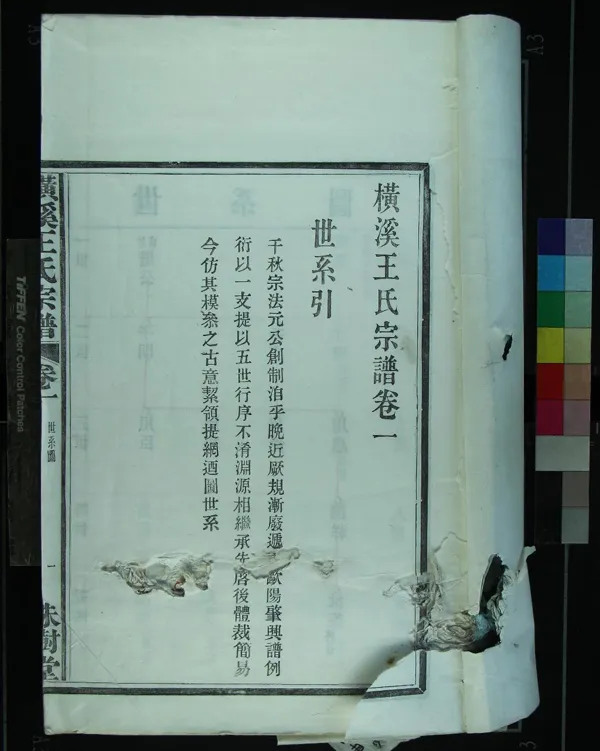 橫溪王氏宗譜卷一
世系引
千秋宗法元公創制洎乎晚近厥規漸廢遞 歐陽肇興譜例
衍以一支提以五世行序不淆淵源相繼承先啓後體裁簡易
今仿其模叅之古意絜領提綱迺圖世系
橫溪王氏宗譜
卷一
世系圖
一
樹堂
TIFFEN Color Control Patches
A3